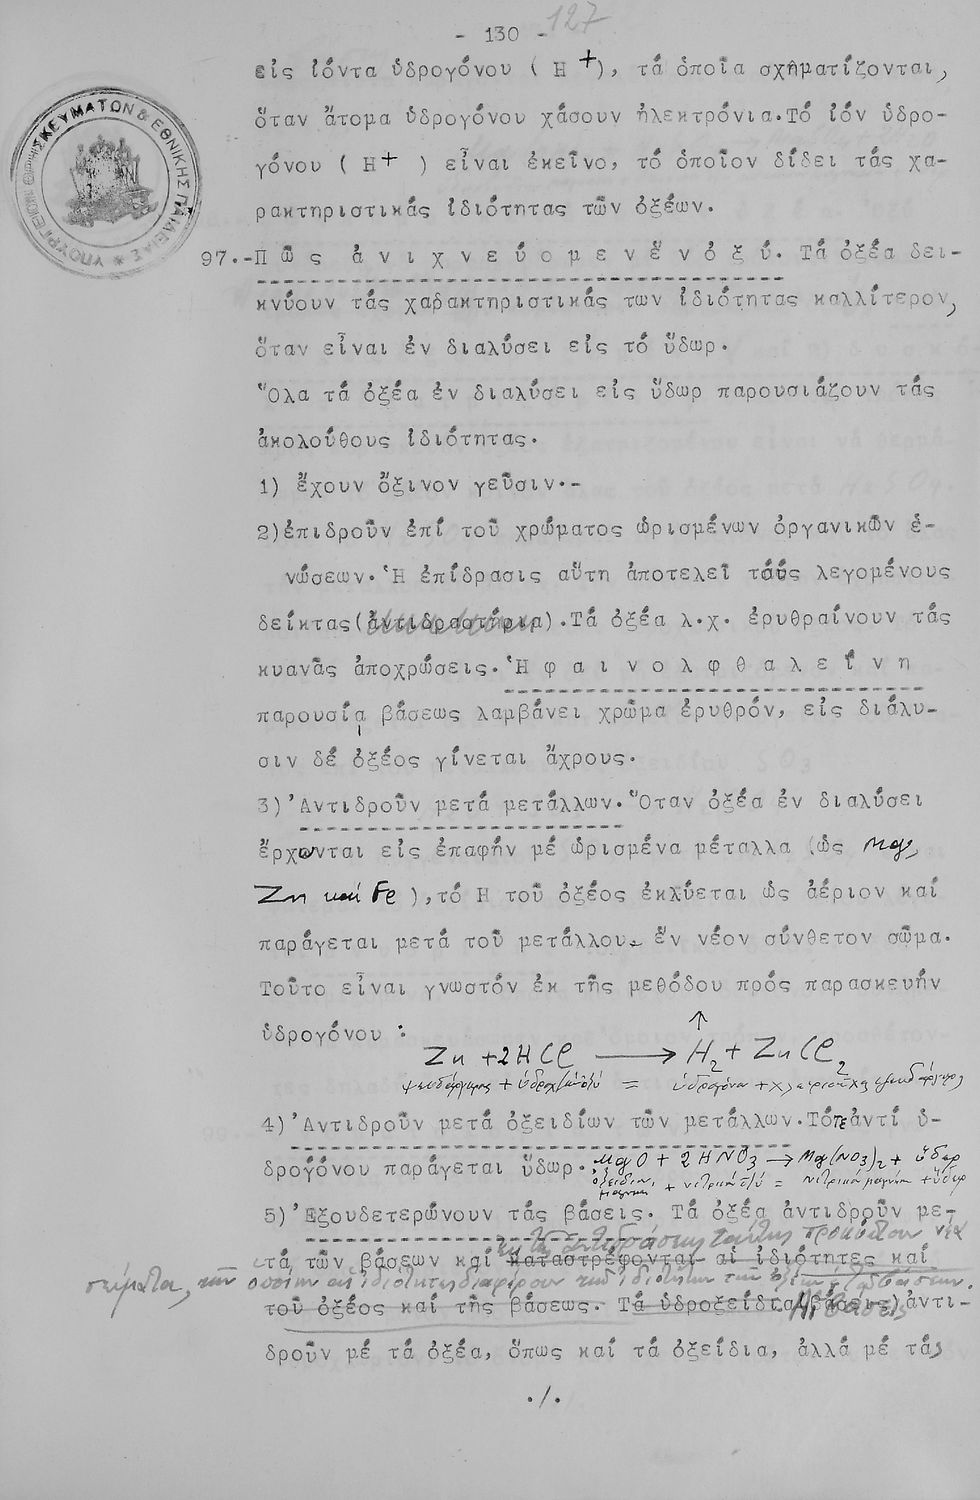 - 130 - 127
εἰς ἰόντα ὑδρογόνου ( H + ), τά ὁποῖα σχηματίζονται,
ὅταν ἄτομα ὑδρογόνου χάσουν ἠλεκτρόνια. Τό ἰόν ὑδρο-
γόνου ( H + ) εἶναι ἐκεῖνο, τό ὁποῖον δίδει τάς χα-
ρακτηριστικάς ἰδιότητας τῶν ὀξέων.
ΥΠΟΥΡΓΕΙΟΝ ΘΡΗΣΚΕΥΜΑΤΩΝ & ΕΘΝΙΚΗΣ ΠΑΙΔΕΙΑΣ
97.-Π ῶ ς ἀ ν ι χ ν ε ύ ο μ ε ν ἕ ν ὀ ξ ύ. Τά ὀξέα δει-
κνύουν τάς χαρακτηριστικάς των ἰδιότητας καλλίτερον,
ὅταν εἶναι ἐν διαλύσει εἰς τό ὕδωρ.
Ὅλα τά ὀξέα ἐν διαλύσει εἰς ὕδωρ παρουσιάζουν τάς
ἀκολούθους ἰδιότητας.
1) ἔχουν ὄξινον γεῦσιν.-
2)ἐπιδροῦν ἐπί τοῦ χρώματος ὡρισμένων ὀργανικῶν ἑ-
νώσεων. Ἡ ἐπίδρασις αὕτη ἀποτελεῖ τούς λεγομένους
δείκτας(ἀντιδραστήρια). Τά ὀξέα λ.χ. ἐρυθραίνουν τάς
κυανᾶς ἀποχρώσεις. Ἡ φ α ι ν ο λ φ θ α λ ε ΐ ν η
παρουσίᾳ βάσεως λαμβάνει χρῶμα ἐρυθρόν, εἰς διάλυ-
σιν δέ ὀξέος γίνεται ἄχρους.
3) Ἀντιδροῦν μετά μετάλλων. Ὅταν ὀξέα ἐν διαλύσει
ἔρχωνται εἰς ἐπαφήν μέ ὡρισμένα μέταλλα (ὡς Mg,
Zn καί Fe ), τό Η τοῦ ὀξέος ἐκλύεται ὡς ἀέριον καί
παράγεται μετά τοῦ μετάλλου ἕν νέον σύνθετον σῶμα.
Τοῦτο εἶναι γνωστόν ἐκ τῆς μεθόδου πρός παρασκευήν
ὑδρογόνου :
↑
Zn + 2HCl ⟶ H2 + ZnCl2
ψευδάργυρος + ὑδροχ/κόν ὀξύ = ὑδρογόνον + χλωριοῦχος ψευδάργυρος
4) Ἀντιδροῦν μετά ὀξειδίων τῶν μετάλλων. Τότε ἀντί ὑ-
δρογόνου παράγεται ὕδωρ. MgO + 2HNO3 → Mg(NO3)2 + ὕδωρ
+ νιτρικόν ὀξύ = νιτρικόν μαγνήσιον + ὕδωρ
5) Ἐξουδετερώνουν τάς βάσεις. Τά ὀξέα ἀντιδροῦν με-
ταύτης προκύπτουν νέα
τά τῶν βάσεων καί καταστρέφονται αἱ ἰδιότητες καί
σώματα, τῶν ὁποίων αἱ ἰδιότητες διαφέρουν τῶν ἰδιοτήτων τῶν
τοῦ ὀξέος καί τῆς βάσεως. Τά ὑδροξείδια(βάσεις) Αἱ βάσεις ἀντι-
δροῦν μέ τά ὀξέα, ὅπως καί τά ὀξείδια, ἀλλά μέ τάς
./.